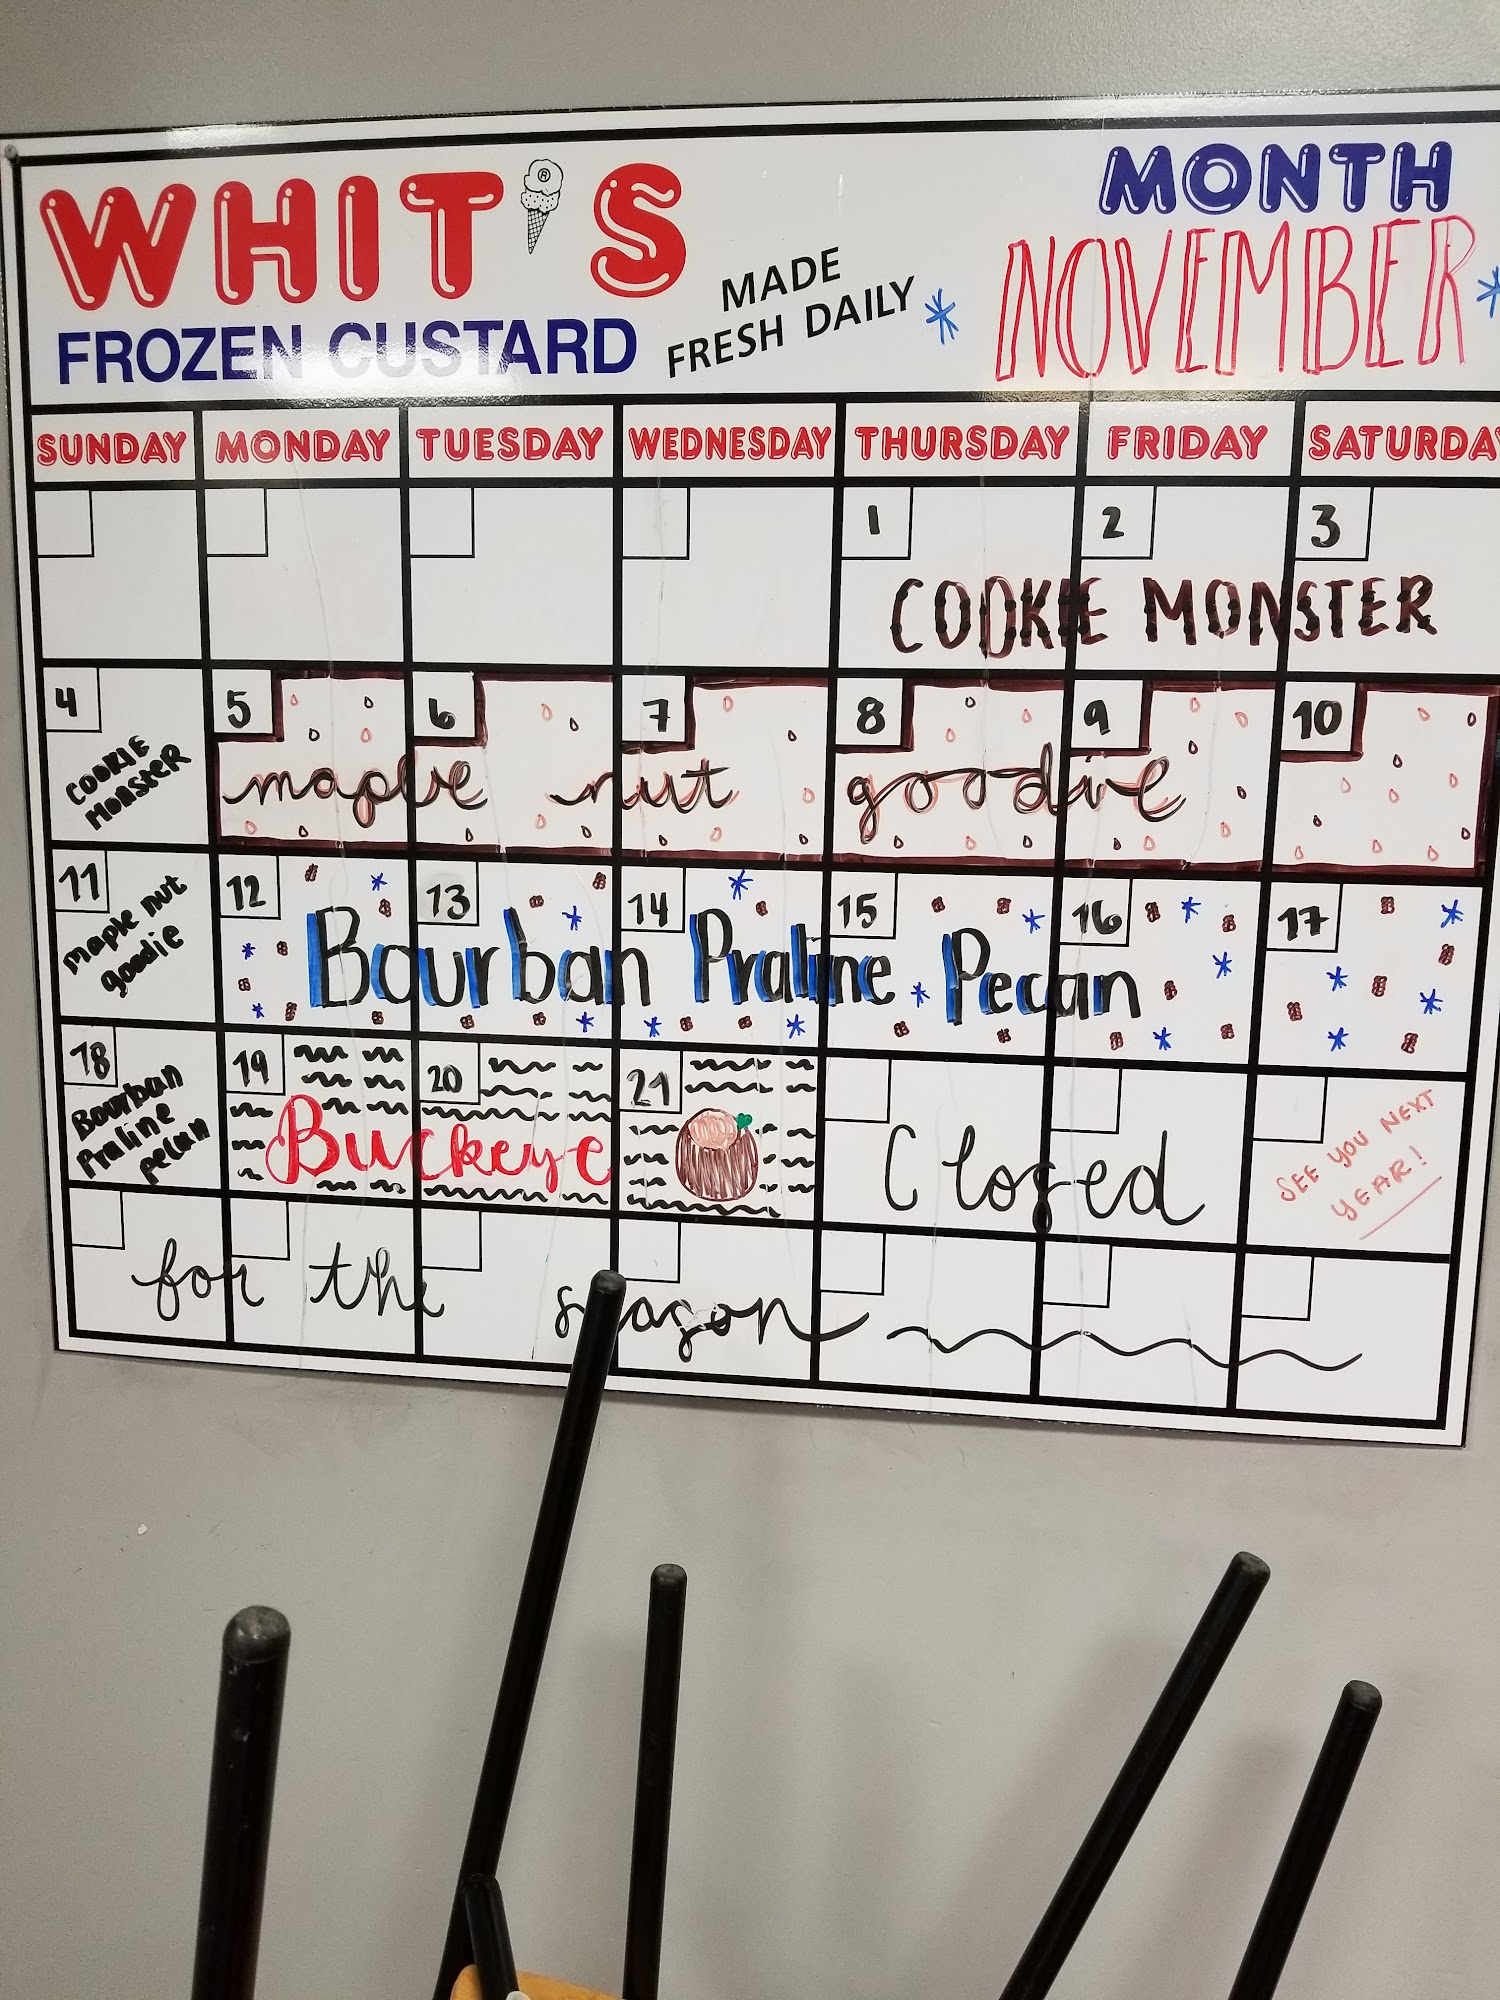 WHIT'S
®
FROZEN CUSTARD
MADE
FRESH DAILY
MONTH
NOVEMBER
SUNDAY MONDAY TUESDAY WEDNESDAY THURSDAY FRIDAY SATURDAY
1 2 3
COOKIE MONSTER
4 5 6 7 8 9 10
COOKIE
MONSTER
maple nut goodie
11 12 13 14 15 16 17
maple nut
goodie
Bourban Praline Pecan
18 19 20 21
Bourban
Praline
pecan
Buckeye
Closed
SEE YOU NEXT
YEAR!
for the season